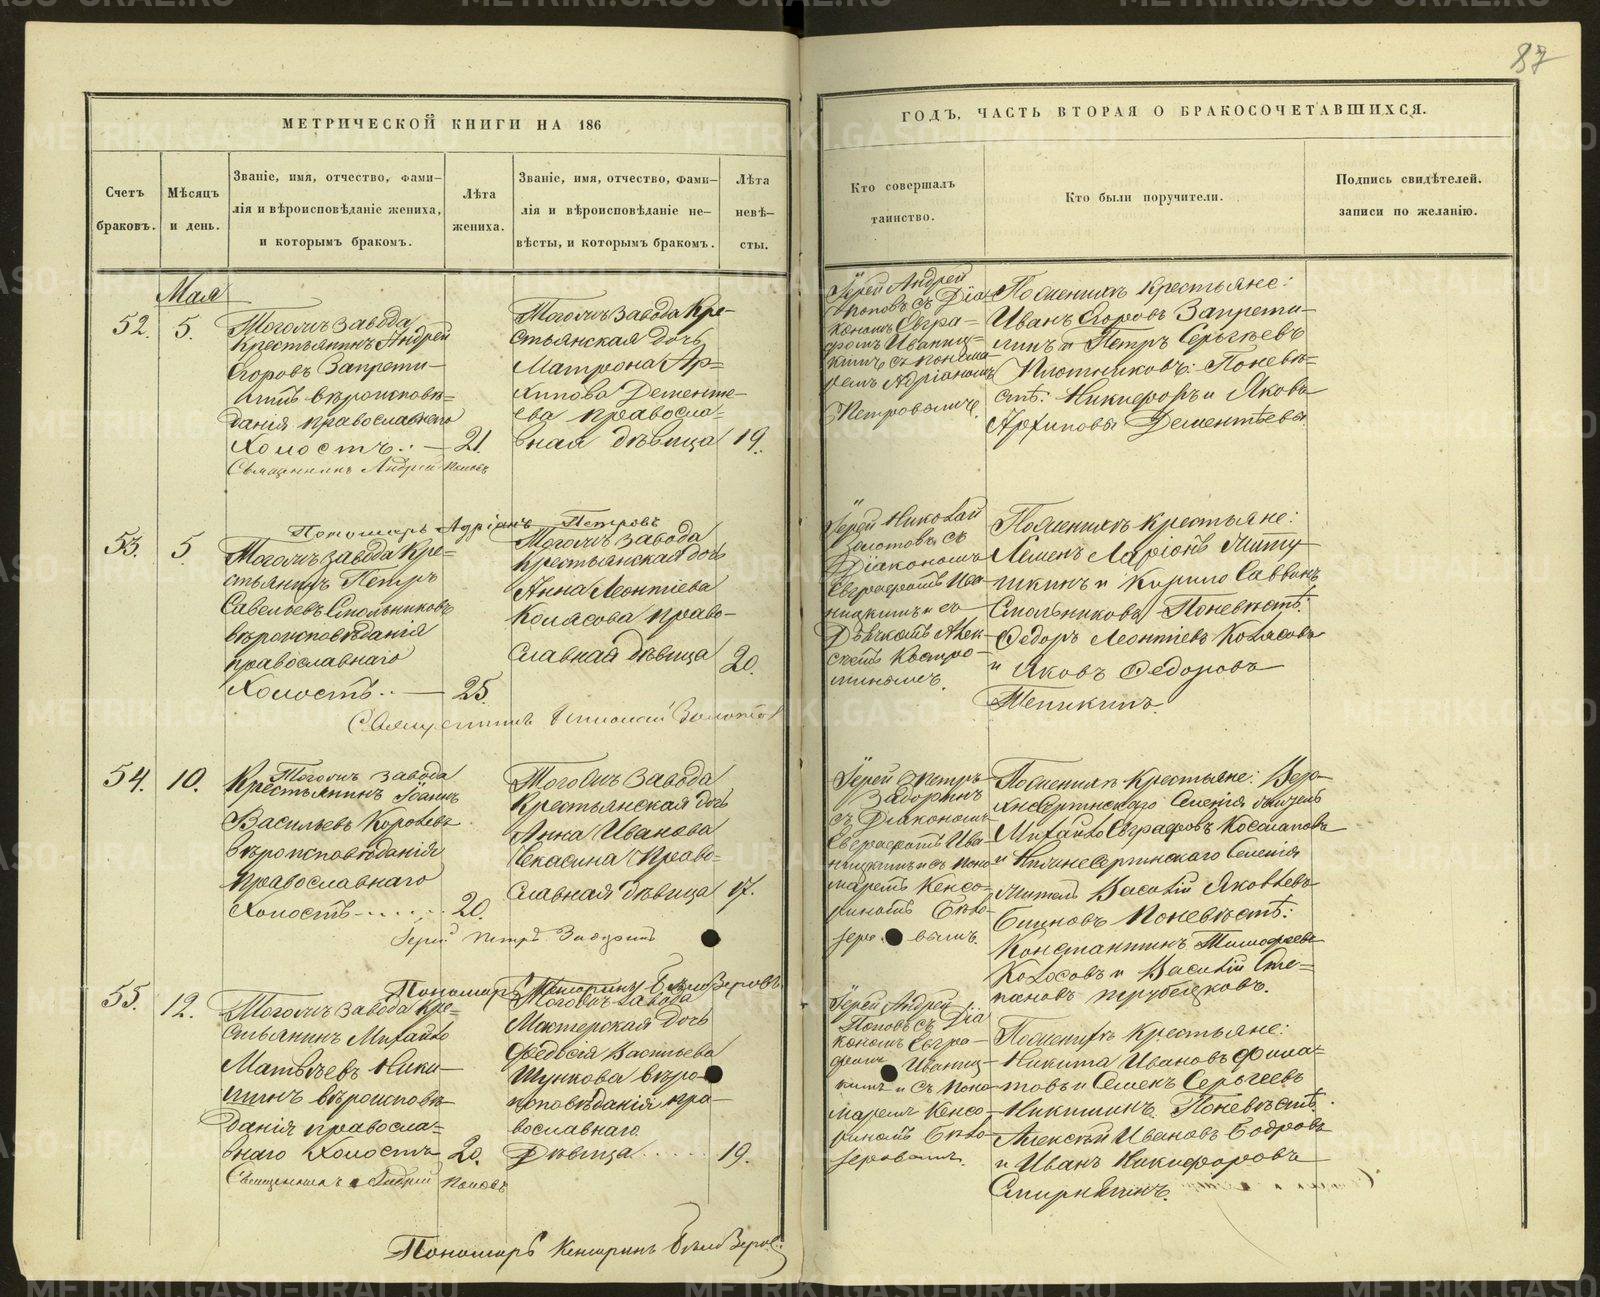 87
МЕТРИЧЕСКОЙ КНИГИ НА 186
Счетъ
браковъ.
Мѣсяцъ
и день.
Званіе, имя, отчество, фами-
лія и вѣроисповѣданіе жениха,
и которымъ бракомъ.
Лѣта
жениха.
Званіе, имя, отчество, фами-
лія и вѣроисповѣданіе не-
вѣсты, и которымъ бракомъ.
Лѣта
невѣ-
сты.
ГОДЪ, ЧАСТЬ ВТОРАЯ О БРАКОСОЧЕТАВШИХСЯ.
Кто совершалъ
таинство.
Кто были поручители.
Подпись свидѣтелей.
записи по желанію.
Мая
52.
5.
Тогожъ завода
Крестьянинъ Андрей
Егоровъ Запрети-
вѣроисповѣ=
данія православнаго
Холостъ. —
21.
Священникъ Андрей Поповъ
Пономарь Адріанъ Петровъ
Тогожъ завода Кре-
стьянская дочь
Матрона Ар=
хипова Дементье-
ева правосла=
вная дѣвица
19.
Іерей Андрей
Поповъ съ Діа
кономъ Евгра=
фомъ Иваниц=
кимъ съ понома
ремъ Адріаномъ
Петровымъ.
По женихѣ крестьяне:
Иванъ Егоровъ Запрети-
и Петръ Сергѣевъ
Плотниковъ: По невѣ=
стѣ: Никифоръ и Яковъ
Архиповы Дементьевы.
53.
5
Тогожъ завода Кре=
стьянинъ Петръ
Савельевъ Смольниковъ
вѣроисповѣданія
православнаго
Холостъ.. —
25.
Священникъ Николай Золотов
Тогожъ завода
крестьянская дочь
Анна Леонтіева
Колясова право-
славная дѣвица
20.
Іерей Николай
Золотовъ съ
Діакономъ
Евграфомъ Ива-
ницкимъ и съ
Дьячкомъ Алек-
По женихѣ крестьяне:
Семенъ Ларіонъ Мит
шкинъ и Кирило Саввинъ
Смольниковы. По невѣстѣ:
Федоръ Леонтіевъ Колясовъ
и Яковъ Федоровъ
54.
10.
Тогожъ завода
Крестьянинъ Іоаннъ
Васильевъ Королевъ
вѣроисповѣданія
православнаго
Холостъ- . . . . .
20.
Іерей Петръ Задоринъ
Тогожъ завода
Крестьянская дочь
Анна Иванова
Чекасина Право=
славная дѣвица
17.
Іерей Петръ
Задоринъ
съ Діакономъ
Евграфомъ Ива
ницкимъ и съ Поно
маремъ Кенсо-
риномъ Бѣло-
зеро- вымъ.
По женихѣ Крестьяне: Верх-
несергинскаго Селенія житель
Михайло Евграфовъ
и Нижнесергинскаго Селенія
житель Василій Яковлевъ
Блиновъ По невѣстѣ:
Константинъ Тимофеевъ
Колосовъ и Василій Сте=
пановъ
Пономарь Бѣлозеровъ
55.
12.
Тогожъ завода Кре=
стьянинъ Михайло
Матвѣевъ Ники-
тинъ вѣроисповѣ-
данія правосла=
внаго Холостъ
20.
Священникъ Андрей Поповъ
Тогожъ завода
Мастерская дочь
Федосія Васильева
Шункова вѣро
исповѣданія пра-
вославнаго.
Дѣвица . . . . .
19.
Іерей Андрей
Поповъ съ Діа
кономъ Евгра-
фомъ Иваниц-
кимъ и съ Поно
маремъ Кенсо-
риномъ Бѣло-
зеровымъ.
По женихѣ Крестьяне:
Никита Ивановъ Фила=
товъ и Семенъ Сергѣевъ
Никитинъ. По невѣстѣ:
Алексѣй Ивановъ Бодровъ
и Иванъ Никифоровъ
Пономарь Кенсоринъ Бѣлозеровъ